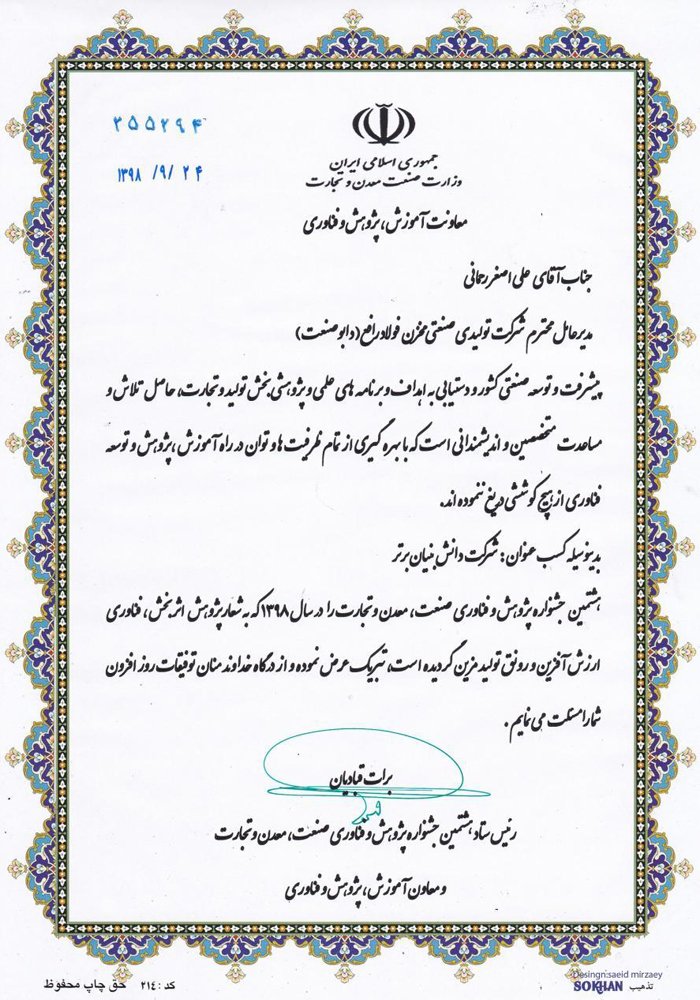 ۲۵۵۲۹۴
۱۳۹۸ /۹/ ۲۴
جمهوری اسلامی ایران
وزارت صنعت معدن و تجارت
معاونت آموزش، پژوهش و فناوری
جناب آقای علی اصغر رحمانی
مدیرعامل محترم شرکت تولیدی صنعتی مخزن فولاد رافع (دابو صنعت)
پیشرفت و توسعه صنعتی کشور و دستیابی به اهداف و برنامه های علمی و پژوهشی بخش تولید و تجارت، حاصل تلاش و
مساعدت متخصصین و اندیشمندانی است که با بهره گیری از تمام ظرفیت ها و توان در راه آموزش، پژوهش و توسعه
فناوری از هیچ کوششی دریغ ننموده اند.
بدینوسیله کسب عنوان: شرکت دانش بنیان برتر
هشتمین جشنواره پژوهش و فناوری صنعت، معدن و تجارت را در سال ۱۳۹۸ که به شعار پژوهش اثربخش، فناوری
ارزش آفرین و رونق تولید مزین گردیده است، تبریک عرض نموده و از درگاه خداوند منان توفیقات روز افزون
شما را مسئلت می نمایم.
برات قبادیان
رئیس ستاد هشتمین جشنواره پژوهش و فناوری صنعت، معدن و تجارت
و معاون آموزش، پژوهش و فناوری
کد: ۲۱۴ حق چاپ محفوظ
Desingn:saeid mirzaey
تذهیب SOKHAN